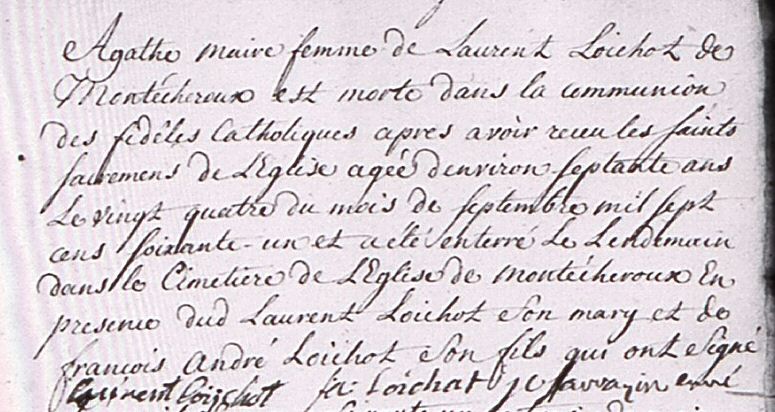 Agathe maire femme de Laurent Loichot de
Montécheroux est morte dans la communion
des fidéles Catholiques apres avoir receu les saints
sacremens de L'Eglise agée d'environ septante ans
Le vingt quatre du mois de septembre mil sept
cens soixante-un et a été enterré Le Lendemain
dans le Cimetiere de L'Eglise de montécheroux En
presence dud Laurent Loichot son mary et de
françois andré Loichot son fils qui ont signé
Laurent loichot fr Loichat curé